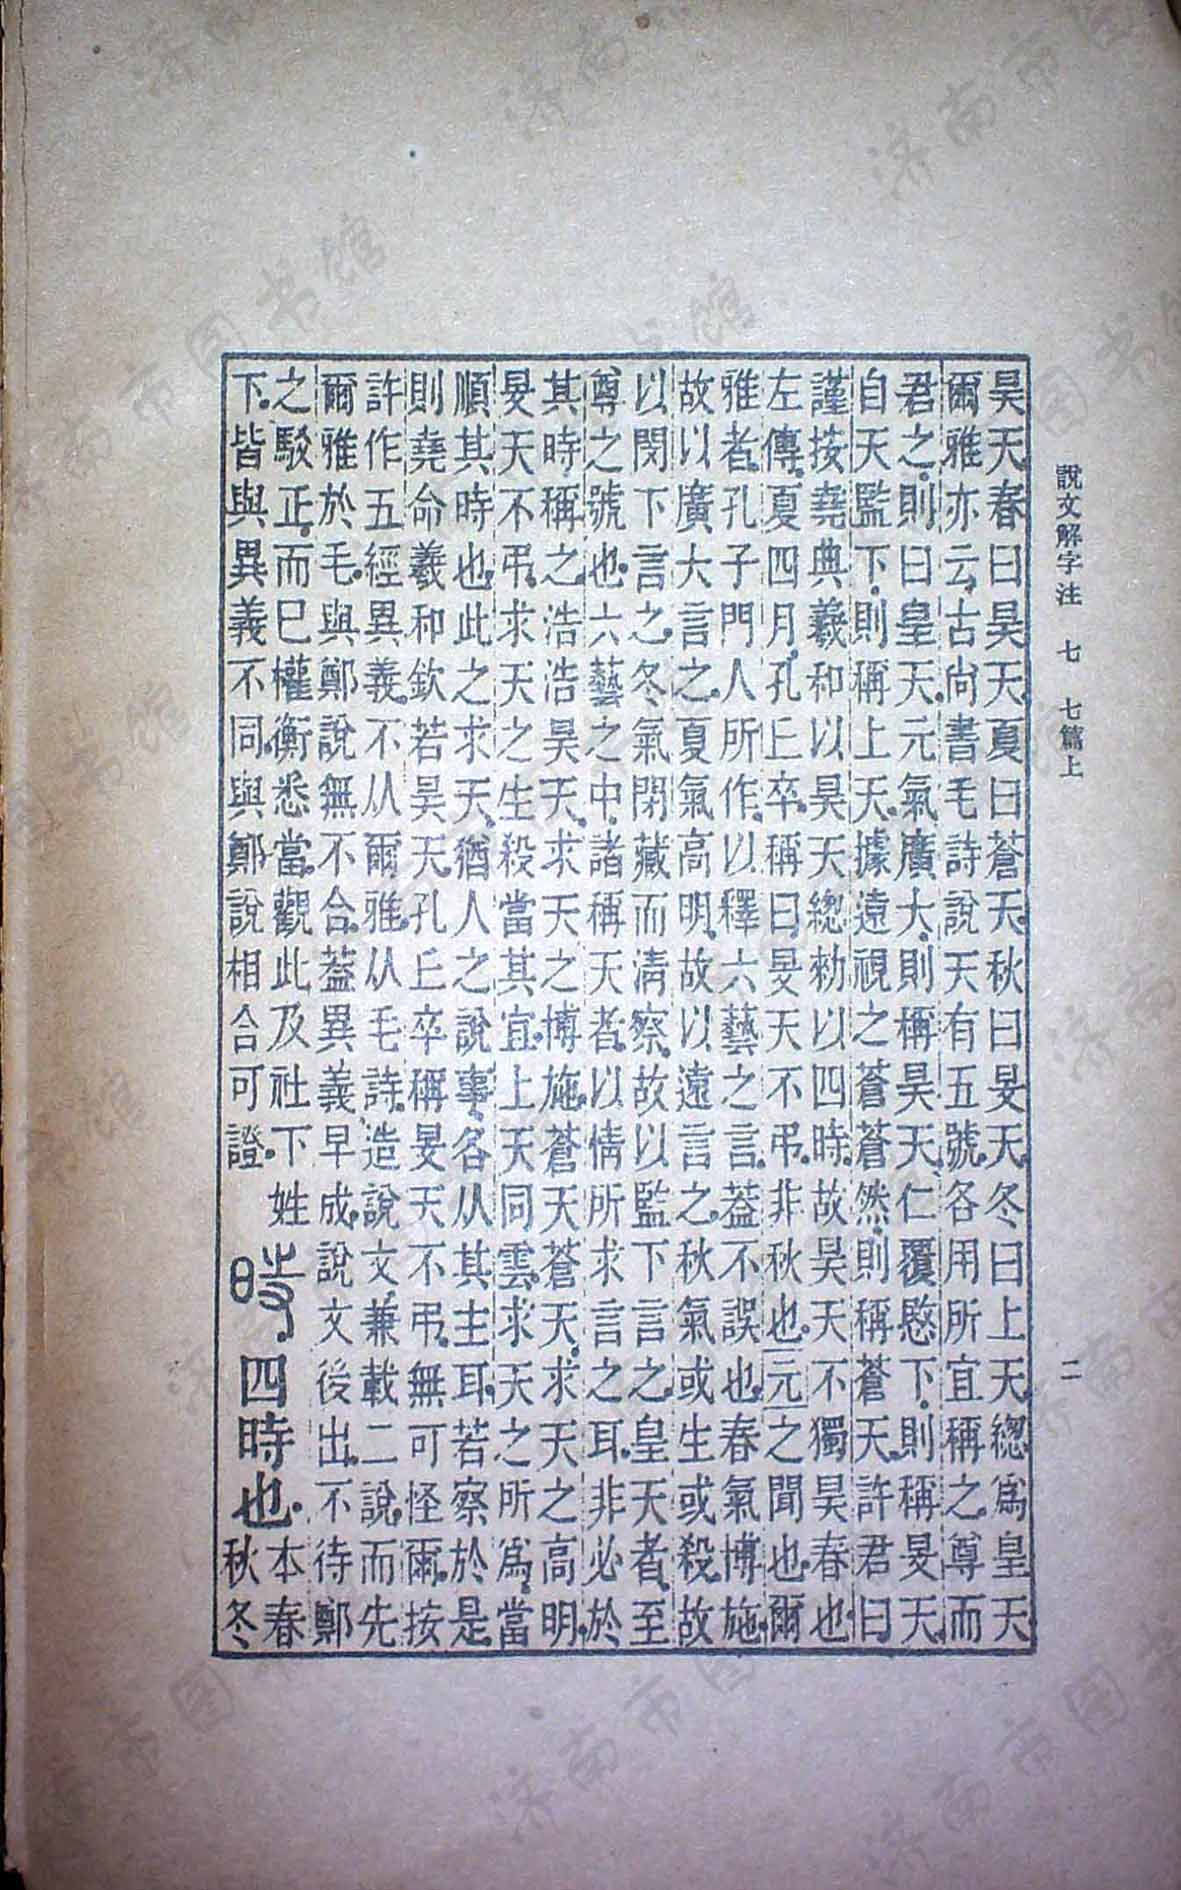 說文解字注 七 七篇上 二
昊天。春曰昊天。夏曰蒼天。秋曰旻天。冬曰上天。緫爲皇天。
爾雅亦云。古尚書毛詩說天有五號。各用所宜稱之。尊而
君之。則曰皇天。元氣廣大。則稱昊天。仁覆愍下。則稱旻天。
自天監下。則稱上天。據遠視之蒼蒼然。則稱蒼天。許君曰。
謹按堯典羲和以昊天緫勑以四時。故昊天不獨昊春也。
左傳。夏四月。孔丘卒。稱曰。旻天不弔。非秋也。元之聞也。爾
雅者。孔子門人所作。以釋六藝之言。葢不誤也。春氣博施。
故以廣大言之。夏氣高明。故以遠言之。秋氣或生或殺。故
以閔下言之。冬氣閉藏而清察。故以監下言之。皇天者。至
尊之號也。六藝之中。諸稱天者。以情所求言之耳。非必於
其時稱之。浩浩昊天。求天之博施。蒼天蒼天。求天之高明。
旻天不弔。求天之生殺當其宜。上天同雲。求天之所爲。當
順其時也。此之求天。猶人之說事。各从其主耳。若察於是。
則堯命羲和。欽若昊天。孔丘卒稱旻天不弔。無可怪爾。按
許作五經異義。不从爾雅。从毛詩。造說文。兼載二說。而先
爾雅於毛。與鄭說無不合。葢異義早成。說文後出。不待鄭
之駁正。而已權衡悉當。觀此及社下。姓
下。皆與異義不同。與鄭說相合可證。
時 四時也。
本春
秋冬